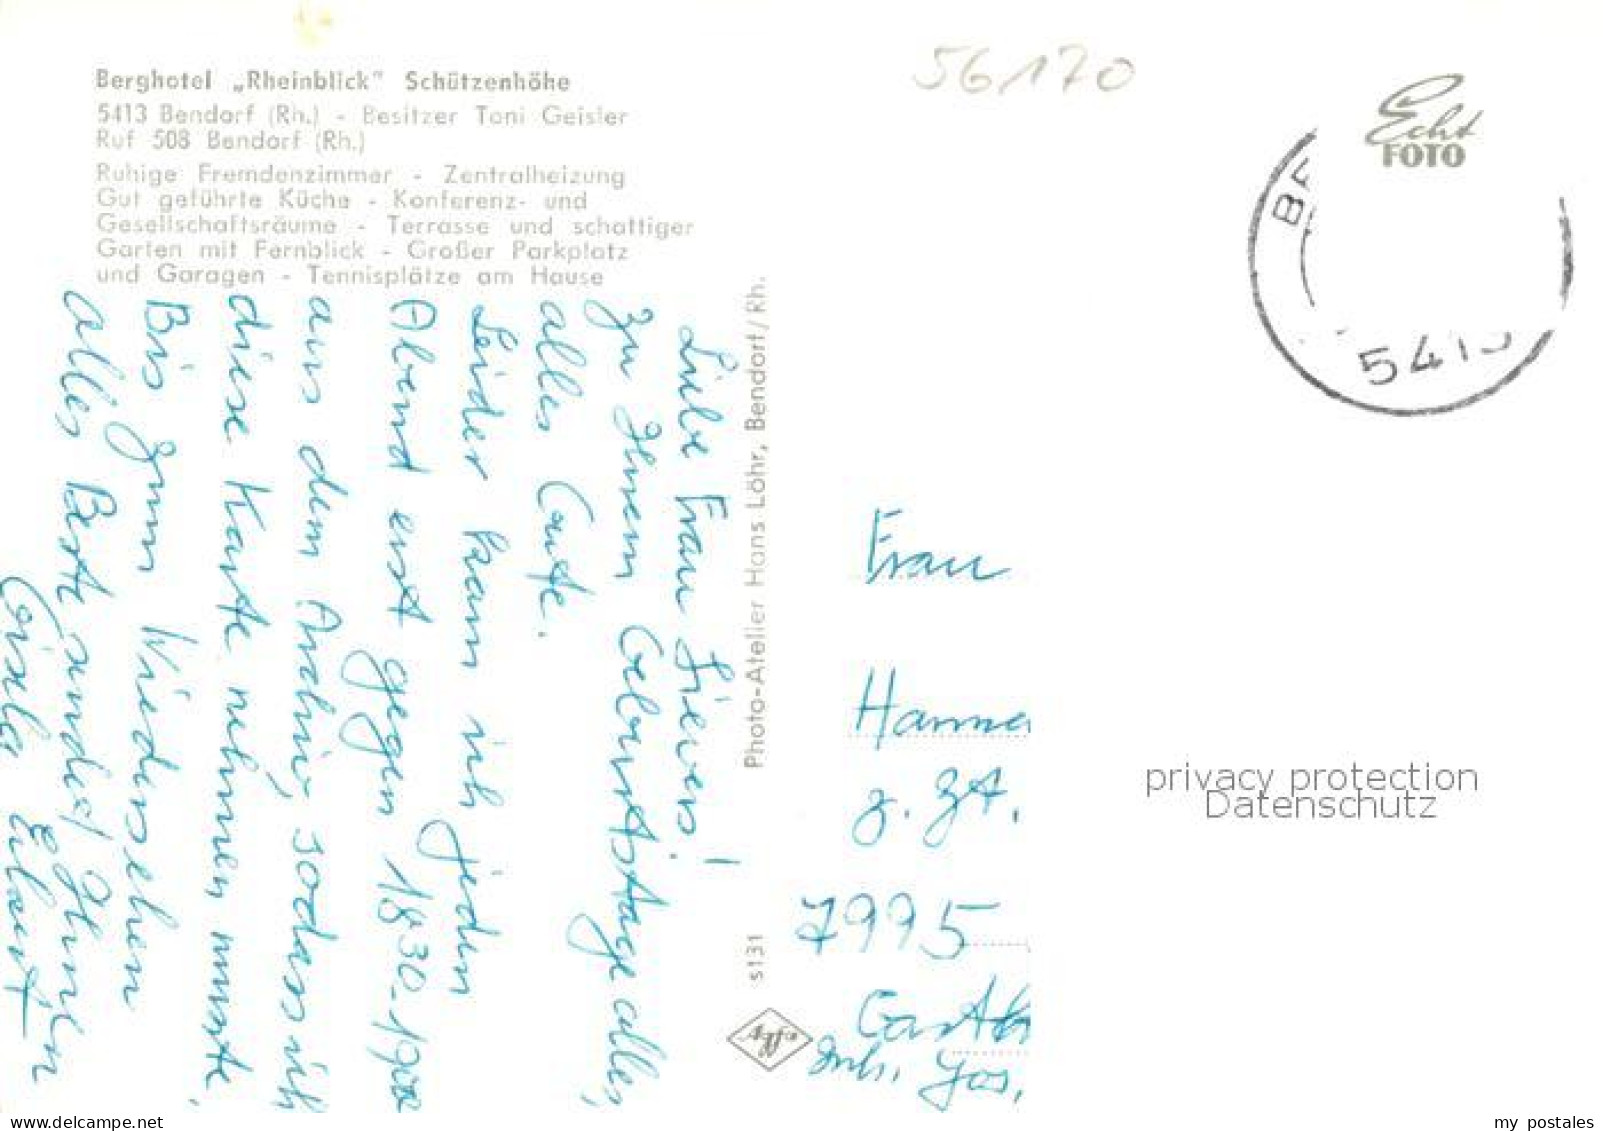 Berghotel „Rheinblick" Schützenhöhe
5413 Bendorf (Rh.) - Besitzer Toni Geisler
Ruf 508 Bendorf (Rh.)
Ruhige Fremdenzimmer - Zentralheizung
Gut geführte Küche - Konferenz- und
Gesellschaftsräume - Terrasse und schattiger
Garten mit Fernblick - Großer Parkplatz
und Garagen - Tennisplätze am Hause
Liebe Frau Sievers!
Zu Ihrem Geburtstage alles,
alles Gute.
Leider kam ich jeden
Abend erst gegen 18³⁰-19⁰⁰
aus dem Archiv, sodass ich
diese Karte nehmen musste.
Bis zum Wiedersehen
alles Beste sendet Ihnen
Gisela
Photo-Atelier Hans Löhr, Bendorf/Rh.
s131
Agfa
56170
Echt
FOTO
BE
5413
Frau
Hanne
z. Zt.
7995
Gasth
Inh. Jos.
privacy protection
Datenschutz
delcampe.net
my postales